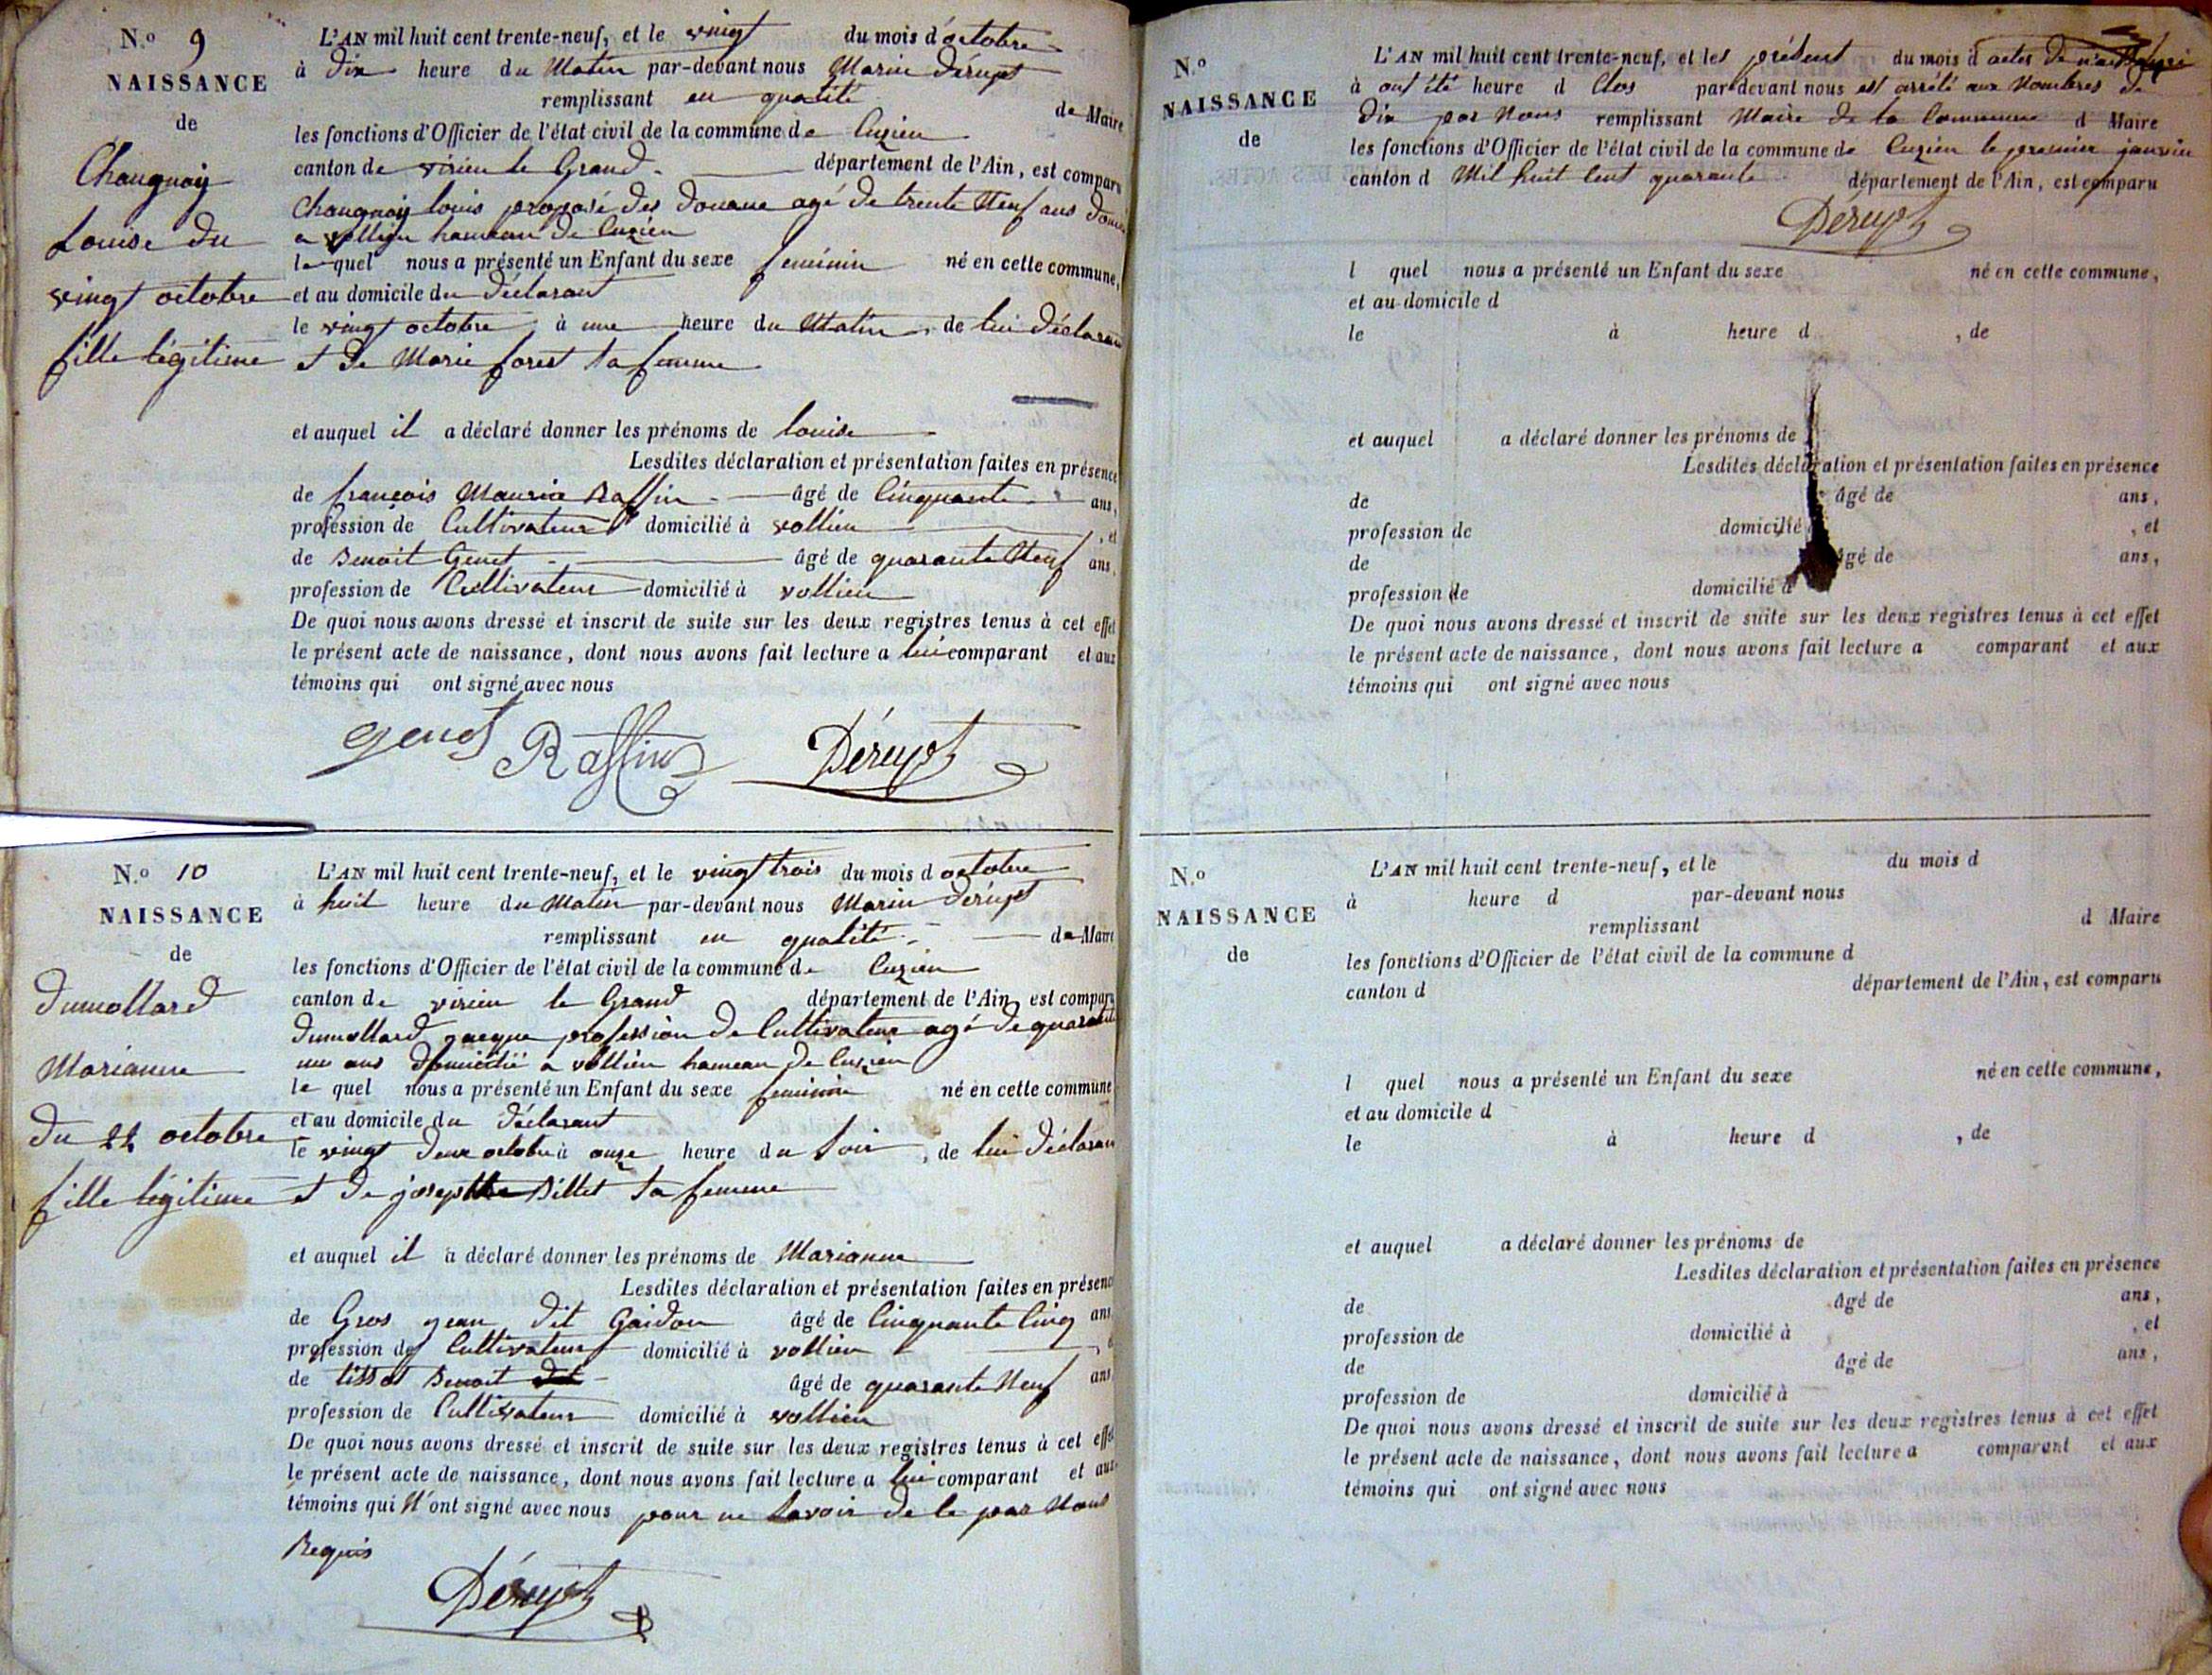 N.º 9
NAISSANCE
de
Changnoy
Louise du
vingt octobre
fille légitime
L'AN mil huit cent trente-neuf, et le vingt du mois d'octobre
à dix heure du Matin par-devant nous Marin Dérupt
remplissant en qualité de Maire
les fonctions d'Officier de l'état civil de la commune de Cuzieu
canton de virieu le Grand département de l'Ain, est comparu
Changnoy louis préposé des Douane agé de trente Neuf ans
a vollien hameau de Cuzieu
le quel nous a présenté un Enfant du sexe feminin né en cette commune,
et au domicile du Déclarant
le vingt octobre à une heure du Matin, de lui Déclarant
et de Marie forest sa femme
et auquel il a déclaré donner les prénoms de louise
Lesdites déclaration et présentation faites en présence
de françois Maurice Raffin âgé de Cinquante ans,
profession de Cultivateur domicilié à vollien, et
de Benoit Genet âgé de quarante Neuf ans,
profession de Cultivateur domicilié à vollien
De quoi nous avons dressé et inscrit de suite sur les deux registres tenus à cet effet
le présent acte de naissance, dont nous avons fait lecture a lui comparant et aux
témoins qui ont signé avec nous
genet Raffin Dérupt
N.º 10
NAISSANCE
de
Dumollard
Marianne
du 22 octobre
fille légitime
L'AN mil huit cent trente-neuf, et le vingt trois du mois d octobre
à huit heure du Matin par-devant nous Marin Dérupt
remplissant en qualité de Maire
les fonctions d'Officier de l'état civil de la commune de Cuzieu
canton de virieu le Grand département de l'Ain, est comparu
Dumollard jacque profession de Cultivateur agé de quarante
un ans Domicilié a vollien hameau de Cuzieu
le quel nous a présenté un Enfant du sexe feminin né en cette commune
et au domicile du Déclarant
le vingt Deux octobre à onze heure du Soir, de lui Déclarant
et de josephte Billet sa femme
et auquel il a déclaré donner les prénoms de Marianne
Lesdites déclaration et présentation faites en présence
de Gros jean dit Gaidon âgé de Cinquante Cinq ans
profession de Cultivateur domicilié à vollien
de tissot Benoit âgé de quarante Neuf ans
profession de Cultivateur domicilié à vollien
De quoi nous avons dressé et inscrit de suite sur les deux registres tenus à cet effet
le présent acte de naissance, dont nous avons fait lecture a lui comparant et aux
témoins qui N'ont signé avec nous pour ne Savoir de le par Nous
Requis
Dérupt
N.º
NAISSANCE
de
L'AN mil huit cent trente-neuf, et les présent du mois d actes De
à ont été heure d Clos par-devant nous est arrété aux Nombres de
Dix par Nous remplissant Maire de la Commune d Maire
les fonctions d'Officier de l'état civil de la commune de Cuzieu le premier janvier
canton d Mil huit Cent quarante département de l'Ain, est comparu
Dérupt
l quel nous a présenté un Enfant du sexe né en cette commune,
et au domicile d
le à heure d , de
et auquel a déclaré donner les prénoms de
Lesdites déclaration et présentation faites en présence
de âgé de ans,
profession de domicilié , et
de âgé de ans,
profession de domicilié à
De quoi nous avons dressé et inscrit de suite sur les deux registres tenus à cet effet
le présent acte de naissance, dont nous avons fait lecture a comparant et aux
témoins qui ont signé avec nous
N.º
NAISSANCE
de
L'AN mil huit cent trente-neuf, et le du mois d
à heure d par-devant nous
remplissant d Maire
les fonctions d'Officier de l'état civil de la commune d
canton d département de l'Ain, est comparu
l quel nous a présenté un Enfant du sexe né en cette commune,
et au domicile d
le à heure d , de
et auquel a déclaré donner les prénoms de
Lesdites déclaration et présentation faites en présence
de âgé de ans,
profession de domicilié à , et
de âgé de ans,
profession de domicilié à
De quoi nous avons dressé et inscrit de suite sur les deux registres tenus à cet effet
le présent acte de naissance, dont nous avons fait lecture a comparant et aux
témoins qui ont signé avec nous